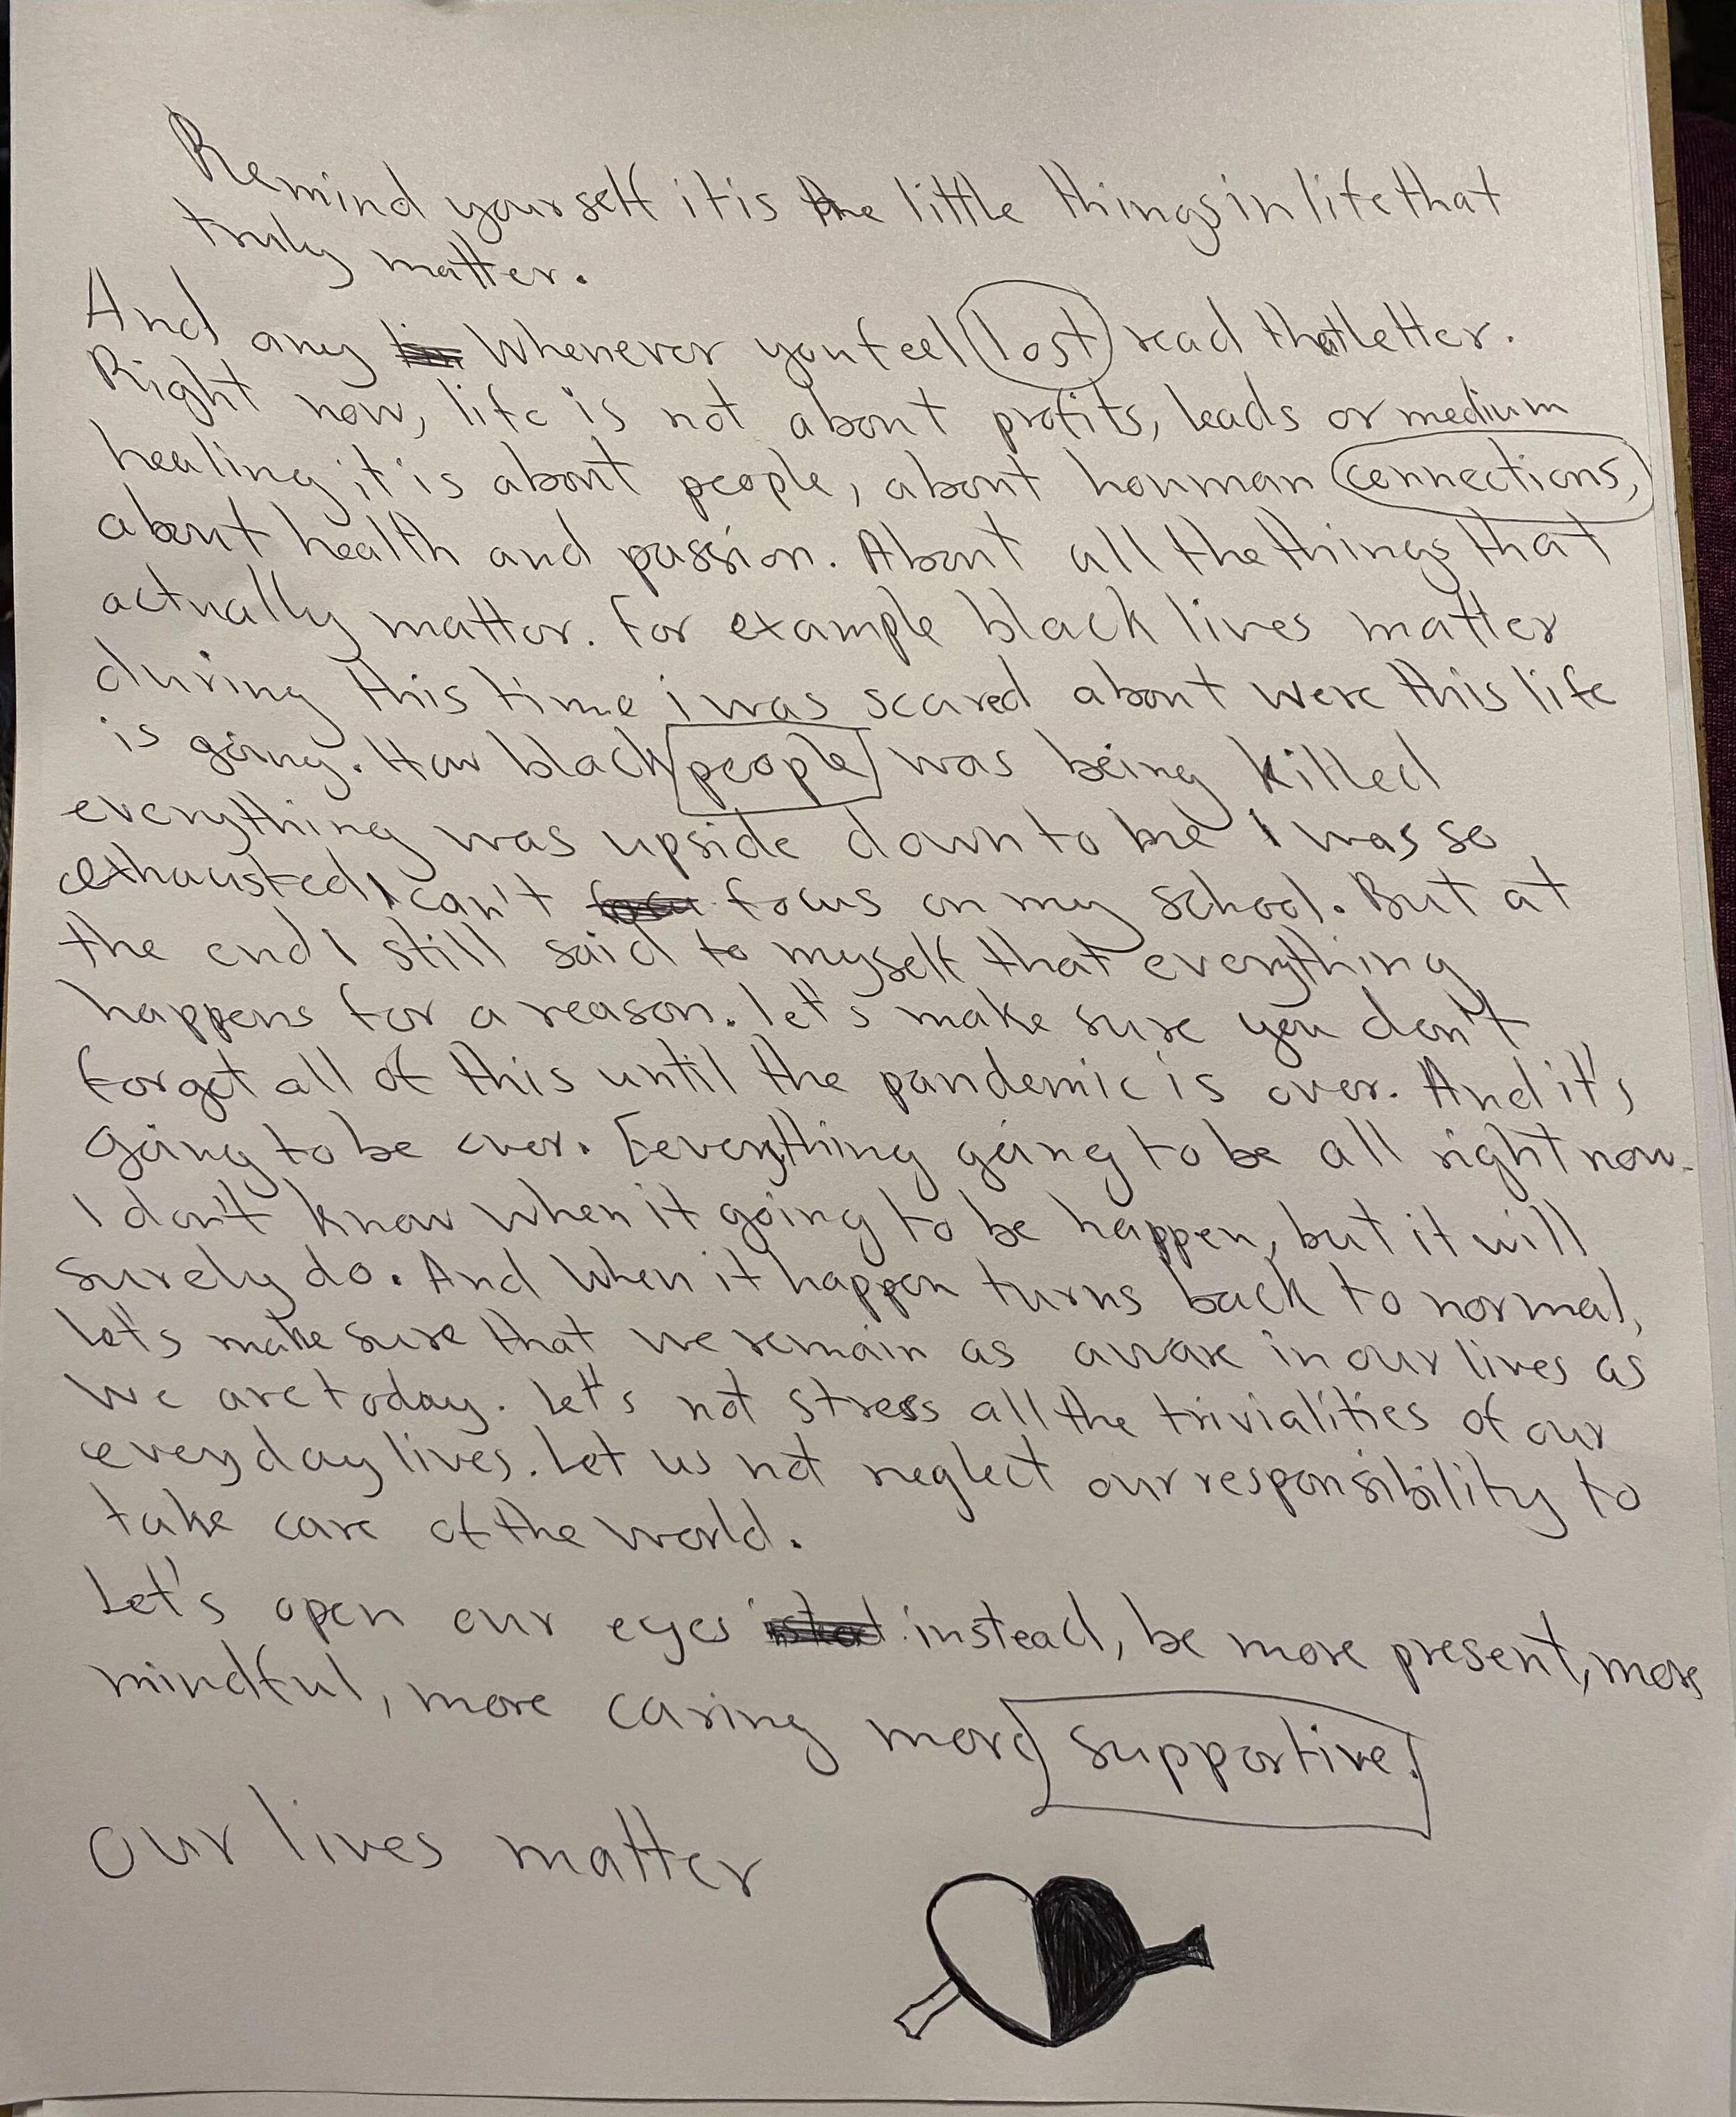 Remind yourself it is the little things in life that
truly matter.
And any whenever you feel lost read that letter.
Right now, life is not about profits, leads or medium
healing it is about people, about houman connections,
about health and passion. About all the things that
actually mattor. For example black lives matter
during this time i was scared about were this life
is going. How black people was being killed
everything was upside down to me I was so
exhausted I can't focus on my school. But at
the end I still said to myself that everything
happens for a reason. let's make sure you don't
forget all of this until the pandemic is over. And it's
going to be over. Everything going to be all right now.
I don't know when it going to be happen, but it will
surely do. And when it happen turns back to normal,
let's make sure that we remain as aware in our lives as
we are today. let's not stress all the trivialities of our
everyday lives. Let us not neglect our responsibility to
take care of the world.
Let's open our eyes instead, be more present, more
mindful, more caring more supportive.
our lives matter